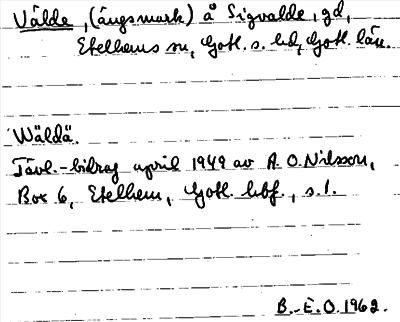 Välde, (ängsmark) å Sigvalde, gd,
Etelhems sn, Gotl. s. hd, Gotl. län.
Wäldä.
Tävl.-bidrag april 1949 av A. O. Nilsson,
Box 6, Etelhem, Gotl. hbf., s. 1.
B.-E.O. 1962.